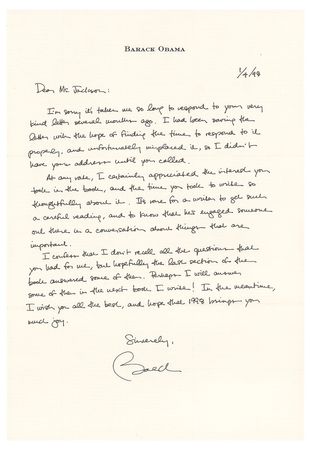 BARACK OBAMA
1/4/98
Dear Mr. Jackson:
I'm sorry it's taken me so long to respond to your very
kind letter several months ago. I had been saving the
letter with the hope of finding the time to respond to it
properly, and unfortunately misplaced it, so I didn't
have your address until you called.
At any rate, I certainly appreciated the interest you
took in the book, and the time you took to write so
thoughtfully about it. It's rare for a writer to get such
a careful reading, and to know that he's engaged someone
out there in a conversation about things that are
important.
I confess that I don't recall all the questions that
you had for me, but hopefully the last section of the
book answered some of them. Perhaps I will answer
some of them in the next book I write! In the meantime,
I wish you all the best, and hope that 1998 brings you
much joy.
Sincerely,